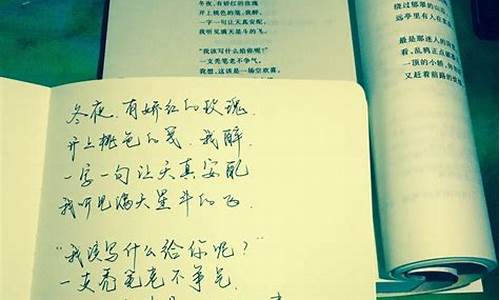 冬夜，有娇红的玫瑰
开上桃色的笺，我醉，
一字一句让天真安配，
我听见满天星斗的飞。
“我该写什么给你呢？”
一支秃笔老不争气，
我想，这该是一场空欢喜。
绕过郁翠的山
远亭里有人在
最是那迷人的
看，乱鸦正点
一顶的小轿，
又赶着前路的
冬夜，有娇红的玫瑰，
开上桃色的笺，我醉，
一字一句让天真安配
我听见满天星斗的飞．
“我该写什么给你呢？”
一支秃笔老不争气，